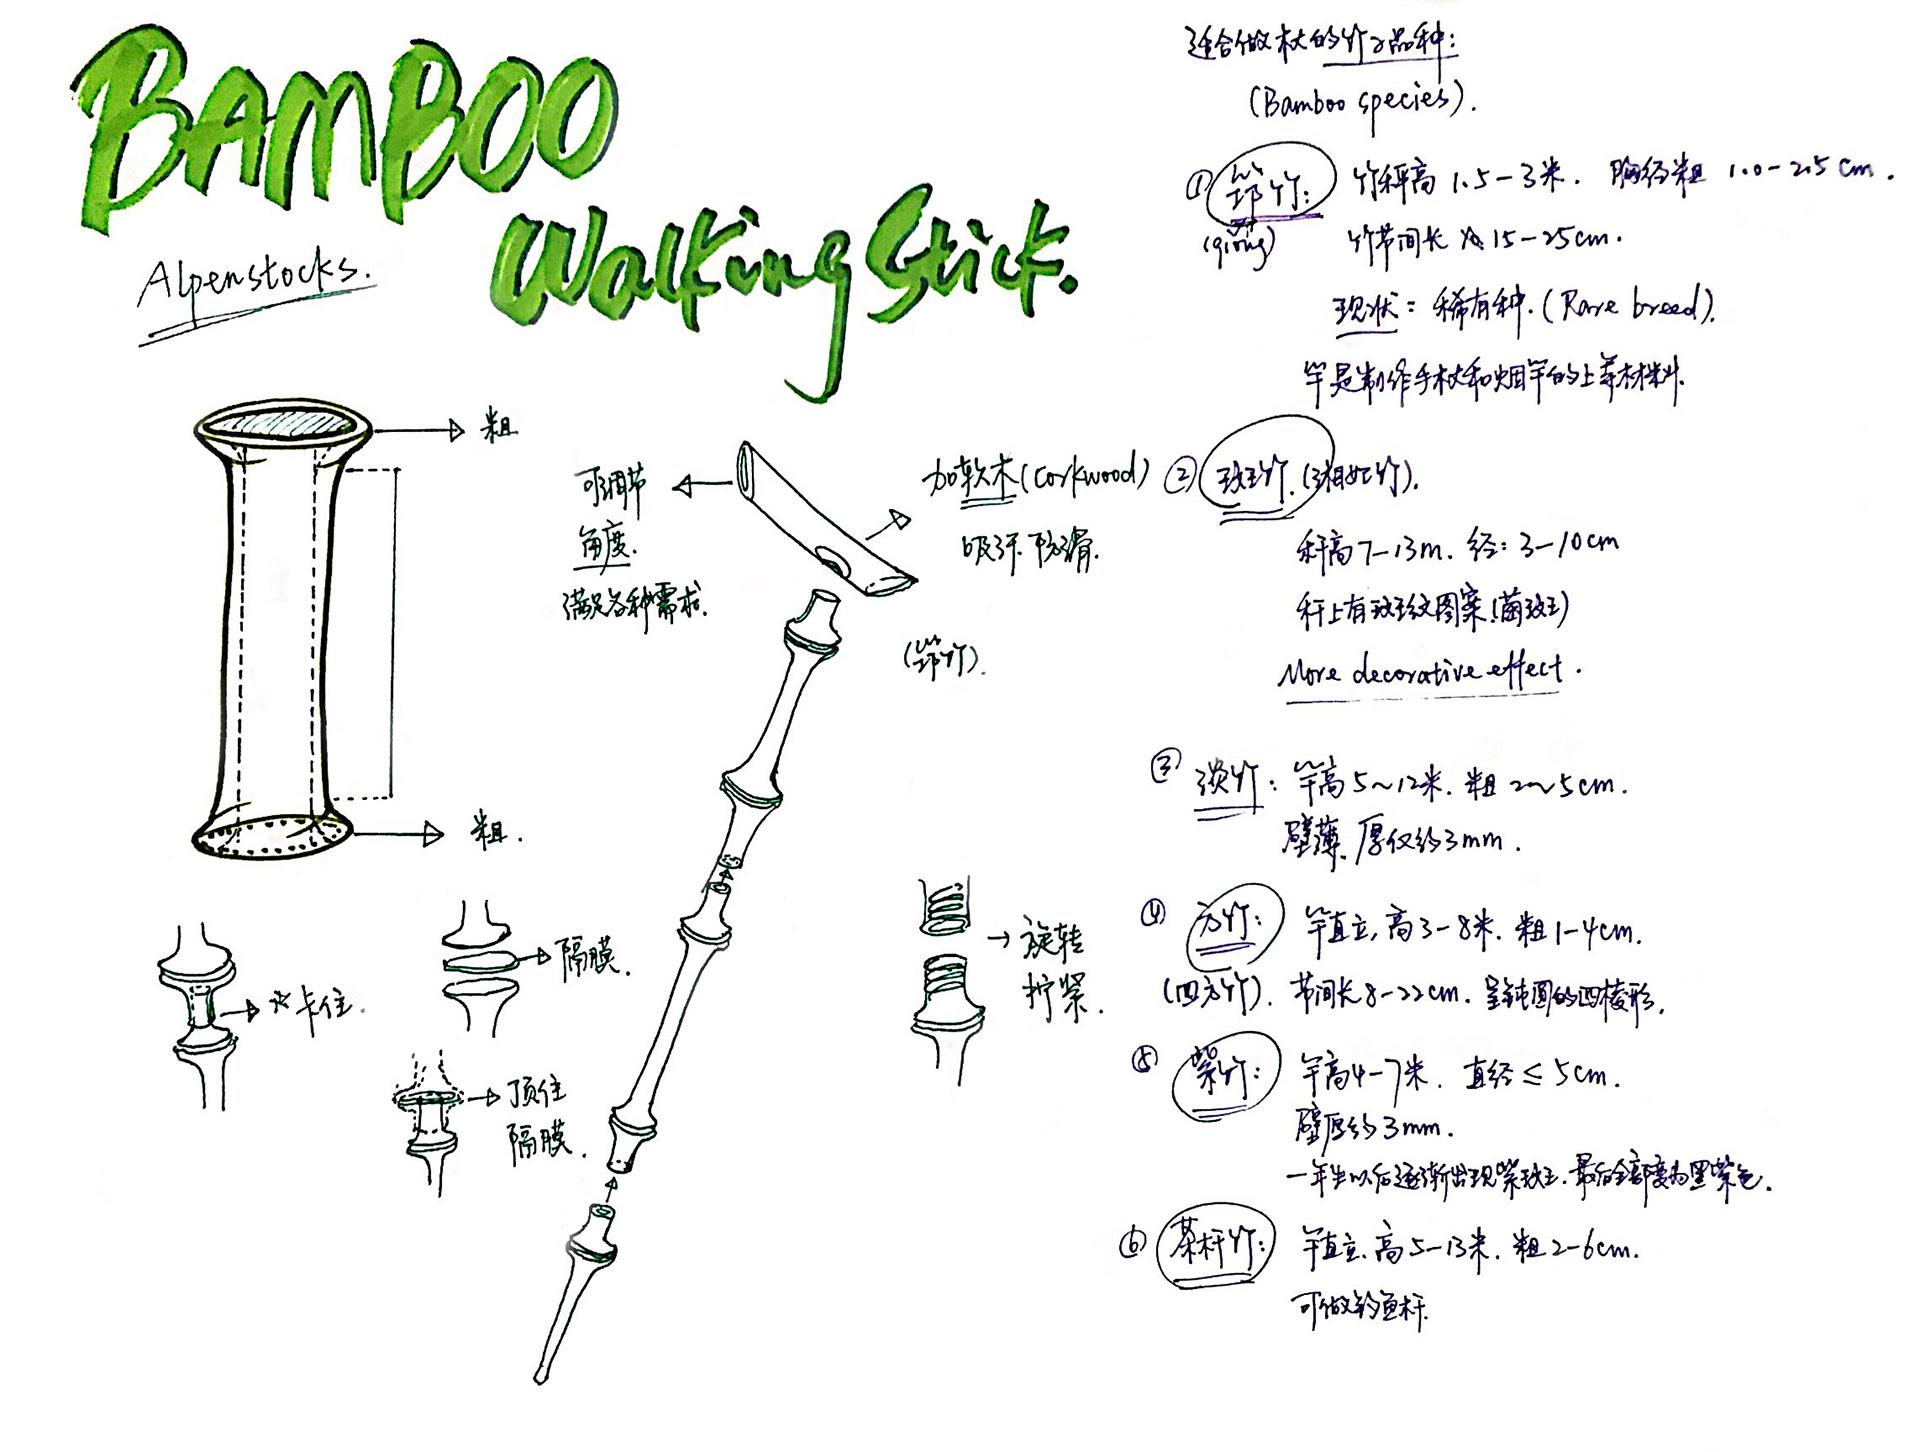 BAMBOO
Walking Stick.
Alpenstocks.
粗
粗.
可调节
角度.
满足各种需求.
加软木(corkwood)
吸汗.防滑.
(筇竹).
卡住.
隔膜.
顶住
隔膜.
旋转
拧紧.
适合做杖的竹子品种:
(Bamboo species).
① 筇竹: 竹秆高 1.5-3米. 胸径粗 1.0-2.5cm.
(qióng) 竹节间长 15-25cm.
现状: 稀有种.(Rare breed).
竿是制作手杖和烟竿的上等材料.
② 斑竹.(湘妃竹).
秆高7-13m. 径: 3-10cm
秆上有斑纹图案.(菌斑)
More decorative effect.
③ 淡竹: 竿高5~12米. 粗2~5cm.
壁薄. 厚仅约3mm.
④ 方竹: 竿直立, 高3-8米. 粗1-4cm.
(四方竹). 节间长8-22cm. 呈钝圆的四棱形.
⑤ 紫竹: 竿高4-7米. 直径≤5cm.
壁厚约3mm.
一年生以后逐渐出现紫斑. 最后全部变为黑紫色.
⑥ 茶秆竹: 竿直立. 高5-13米. 粗2-6cm.
可做钓鱼杆.